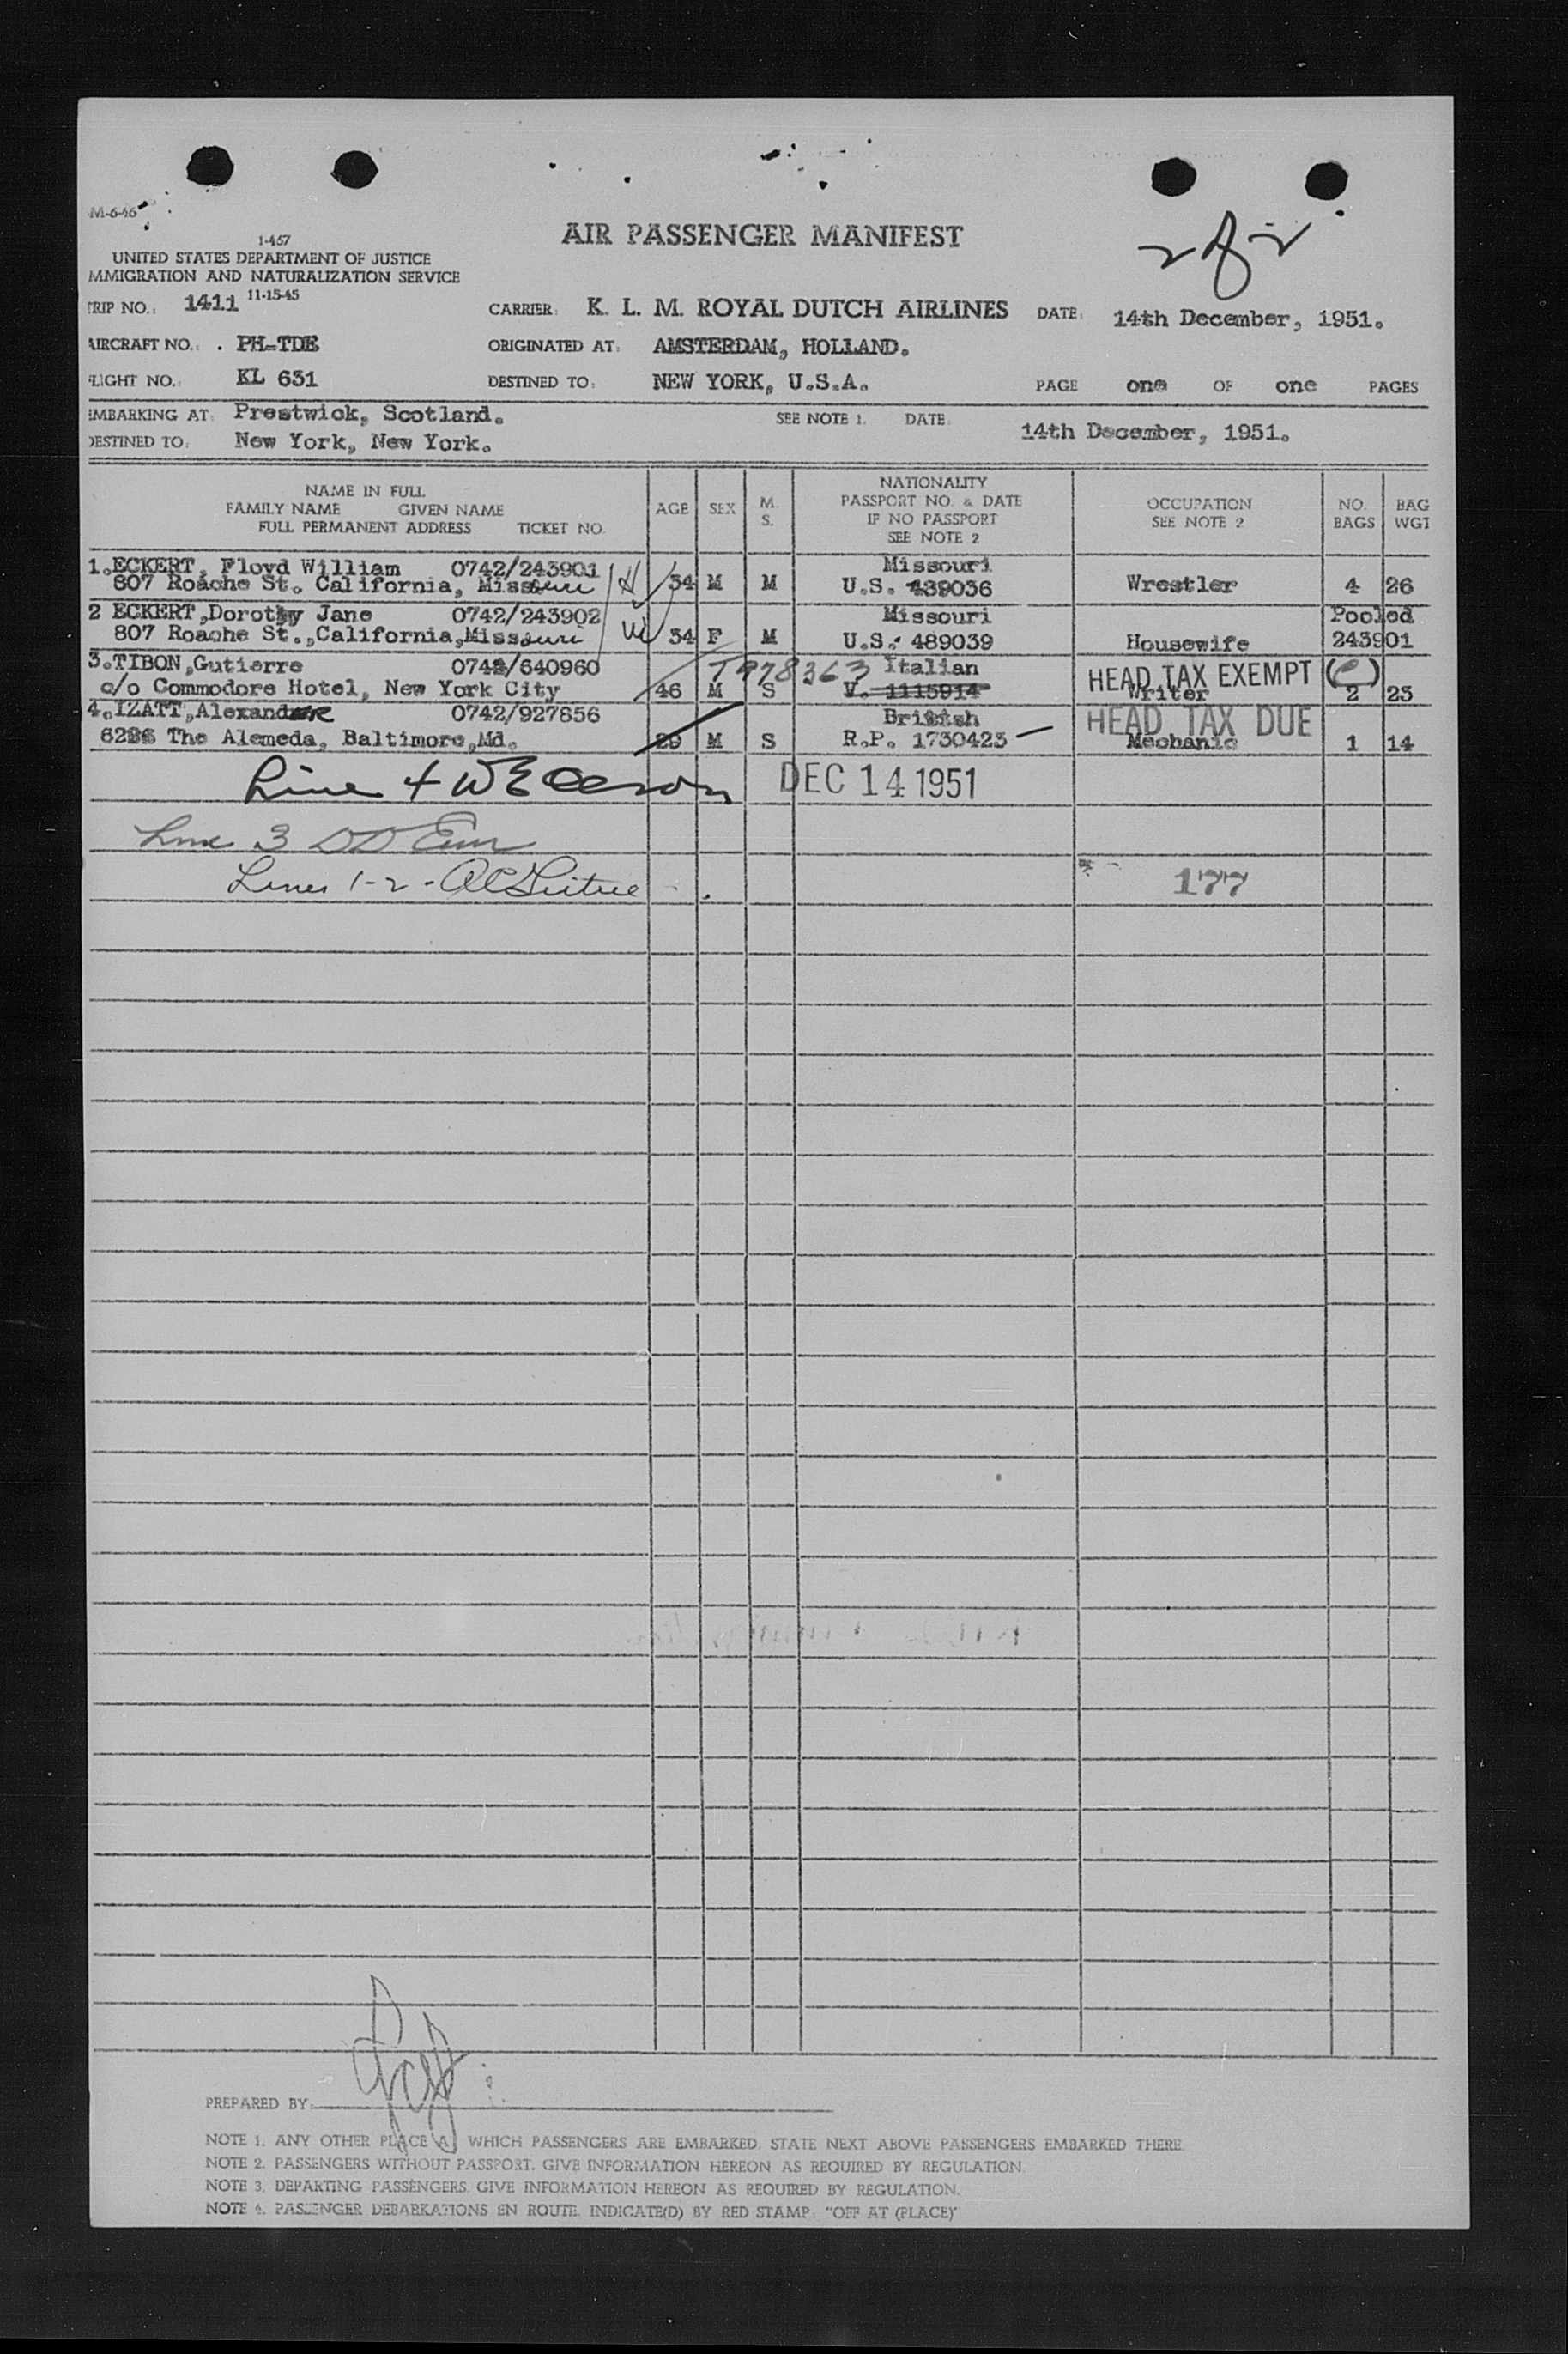 M-6-46
1-457
UNITED STATES DEPARTMENT OF JUSTICE
MMIGRATION AND NATURALIZATION SERVICE
11-15-45
AIR PASSENGER MANIFEST
2 of 2
TRIP NO.: 1411
CARRIER: K. L. M. ROYAL DUTCH AIRLINES DATE: 14th December, 1951.
AIRCRAFT NO.: . PH-TDE
ORIGINATED AT: AMSTERDAM, HOLLAND.
FLIGHT NO.: KL 631
DESTINED TO: NEW YORK, U.S.A. PAGE one OF one PAGES
EMBARKING AT: Prestwick, Scotland. SEE NOTE 1. DATE: 14th December, 1951.
DESTINED TO: New York, New York.
NAME IN FULL
FAMILY NAME GIVEN NAME
FULL PERMANENT ADDRESS TICKET NO.
AGE SEX M. S.
NATIONALITY
PASSPORT NO. & DATE
IF NO PASSPORT
SEE NOTE 2
OCCUPATION
SEE NOTE 2
NO. BAGS
BAG WGT
1. ECKERT, Floyd William 0742/243901 Missouri
807 Roache St. California, Missouri H 34 M M U.S. 489036 Wrestler 4 26
2 ECKERT, Dorothy Jane 0742/243902 Missouri Pooled
807 Roache St., California, Missouri W 34 F M U.S. 489039 Housewife 243901
3. TIBON, Gutierre 0742/640960 T978363 Italian HEAD TAX EXEMPT (e)
c/o Commodore Hotel, New York City 46 M S V. 1115914 Writer 2 23
4. IZATT, Alexander 0742/927856 British HEAD TAX DUE
The Alemeda, Baltimore, Md. 29 M S R.P. 1730423 Mechanic 1 14
Line 4 DEC 14 1951
Line 3
Lines 1-2 - 177
PREPARED BY:
NOTE 1. ANY OTHER PLACE AT WHICH PASSENGERS ARE EMBARKED, STATE NEXT ABOVE PASSENGERS EMBARKED THERE.
NOTE 2. PASSENGERS WITHOUT PASSPORT, GIVE INFORMATION HEREON AS REQUIRED BY REGULATION.
NOTE 3. DEPARTING PASSENGERS, GIVE INFORMATION HEREON AS REQUIRED BY REGULATION.
NOTE 4. PASSENGER DEBARKATIONS EN ROUTE, INDICATE(D) BY RED STAMP: "OFF AT (PLACE)"